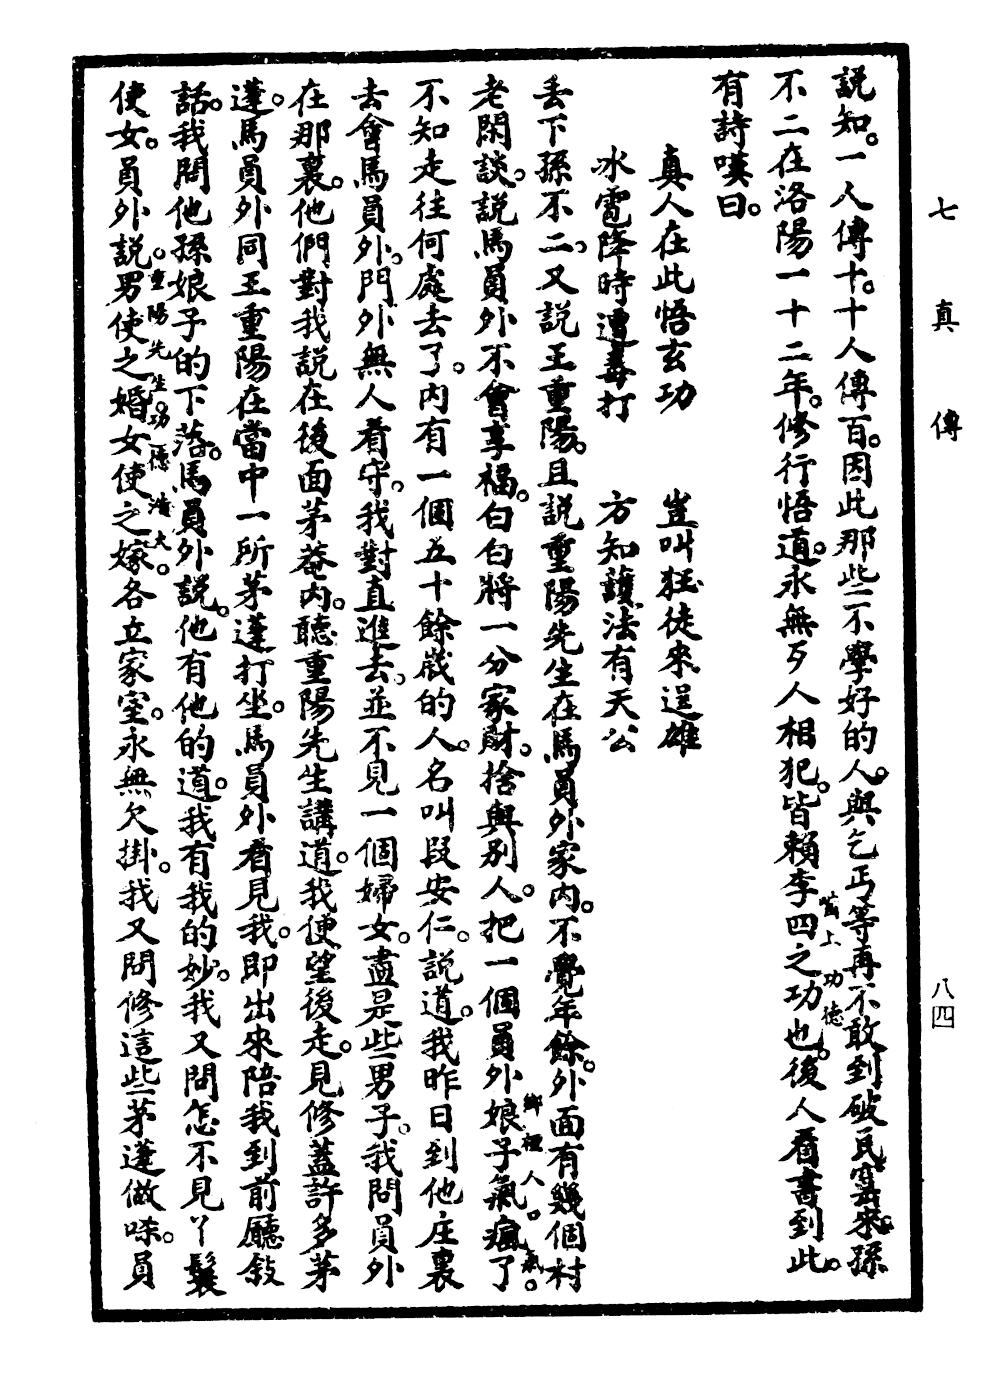 七真傳
八四
説知。一人傳十。十人傳百。因此那些不學好的人。與乞丐等再不敢到破瓦窰來。孫
不二在洛陽一十二年。修行悟道。永無歹人相犯。皆賴李四之功也。後人看書到此。
上功德
有詩嘆曰。
真人在此悟玄功　豈叫狂徒來逞雄
冰雹降時遭毒打　方知護法有天公
丢下孫不二。又説王重陽。且説重陽先生在馬員外家内。不覺年餘。外面有幾個村
老閑談。説馬員外不會享福。白白將一分家財。捨與別人。把一個員外娘子氣瘋了
鄉裡人。氣。
不知走往何處去了。内有一個五十餘歲的人。名叫段安仁。説道。我昨日到他庄裏
去會馬員外。門外無人看守。我對直進去。並不見一個婦女。盡是些男子。我問員外
在那裏。他們對我説在後面茅菴内。聽重陽先生講道。我便望後走。見修蓋許多茅
蓬。馬員外同王重陽在當中一所茅蓬打坐。馬員外看見我。即出來陪我到前廳敍
話。我問他孫娘子的下落。馬員外説。他有他的道。我有我的妙。我又問怎不見丫鬟
使女。員外説。男使之婚女使之嫁各立家室。永無欠掛。我又問修這些茅蓬做嗼。員
重陽先生。功德浩大。